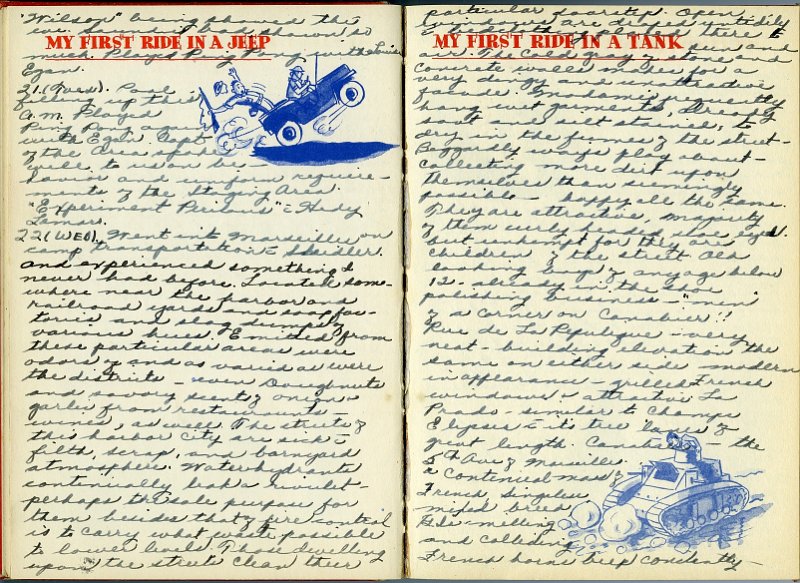 "Wilson" being phoned the
shown so
MY FIRST RIDE IN A JEEP
much. Played Ping Pong with Louis
Egan.
21. (Tues). Pool
filling up this
A.M. Played
Ping Pong again
with Egan. Capt
of the Area spoke
to us on be-
havior and uniform require-
ments of the Staging Area.
"Experiment Perilous" - Hedy
Lamarr.
22. (WED). Went into Marseilles on
camp transportation
and experienced something I
never had before. Located some-
where near the harbor and
railroad yards and soap fac-
tories and slag dumps of
various hues. Emitted from
these particular areas were
odors of and as varied as were
the districts - even Doughnuts
and savory scent of onion &
garlic from restaurants -
wines, as well. The streets of
this harbor city are sick -
filth, scrap, and barnyard
atmosphere. Water hydrants
continually leak a rivulet -
perhaps the sole purpose for
them besides that of fire control
is to carry what waste possible
to lower levels. Those dwelling
upon the street clean their
particular doorstep. Open
windows are draped untidily
there to
MY FIRST RIDE IN A TANK
air. The cold gray of stone and
concrete walls makes for a
very dingy and unattractive
facade. Madams frequently
hang wet garments, already
soot and silt stained, to
dry in the fumes of the street -
Beggardly waifs play about -
collecting more dirt upon
themselves than seemingly
possible - happy all the same.
They are attractive, majority
of them curly headed,
but unkempt for they are
children of the street. Old
looking group of any age below
12 - already in the shoe
polishing business - "men"
of a corner on Canabier!!
Rue de La Republique - very
neat - building elevation the
same on either side - modern
in appearance - grilled French
windows - attractive. La
Prado - similar to Champs
Elysees - it's tree lanes of
great length. Canebiere - the
5th Ave of Marseille.
a continual mass of
French, Singalese
mixed breed
G.I.s - melling
and colliding
French horns beep constantly -